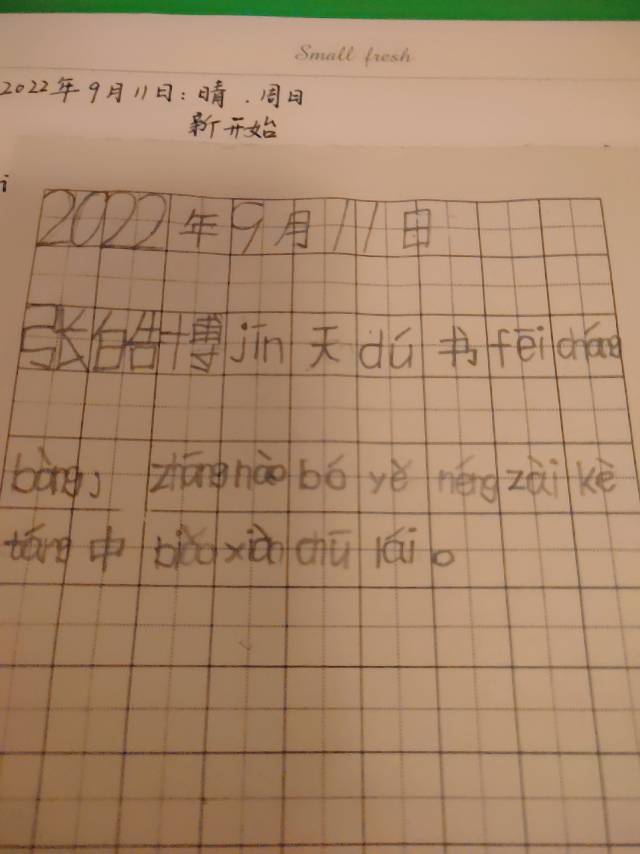 Small fresh
2022年9月11日:晴.周日
新开始
i
2022年9月11日
张皓博jīn天dú书fēicháng
bàng, zhānghàobó yě néngzàikè
táng中biǎoxiànchūlái。